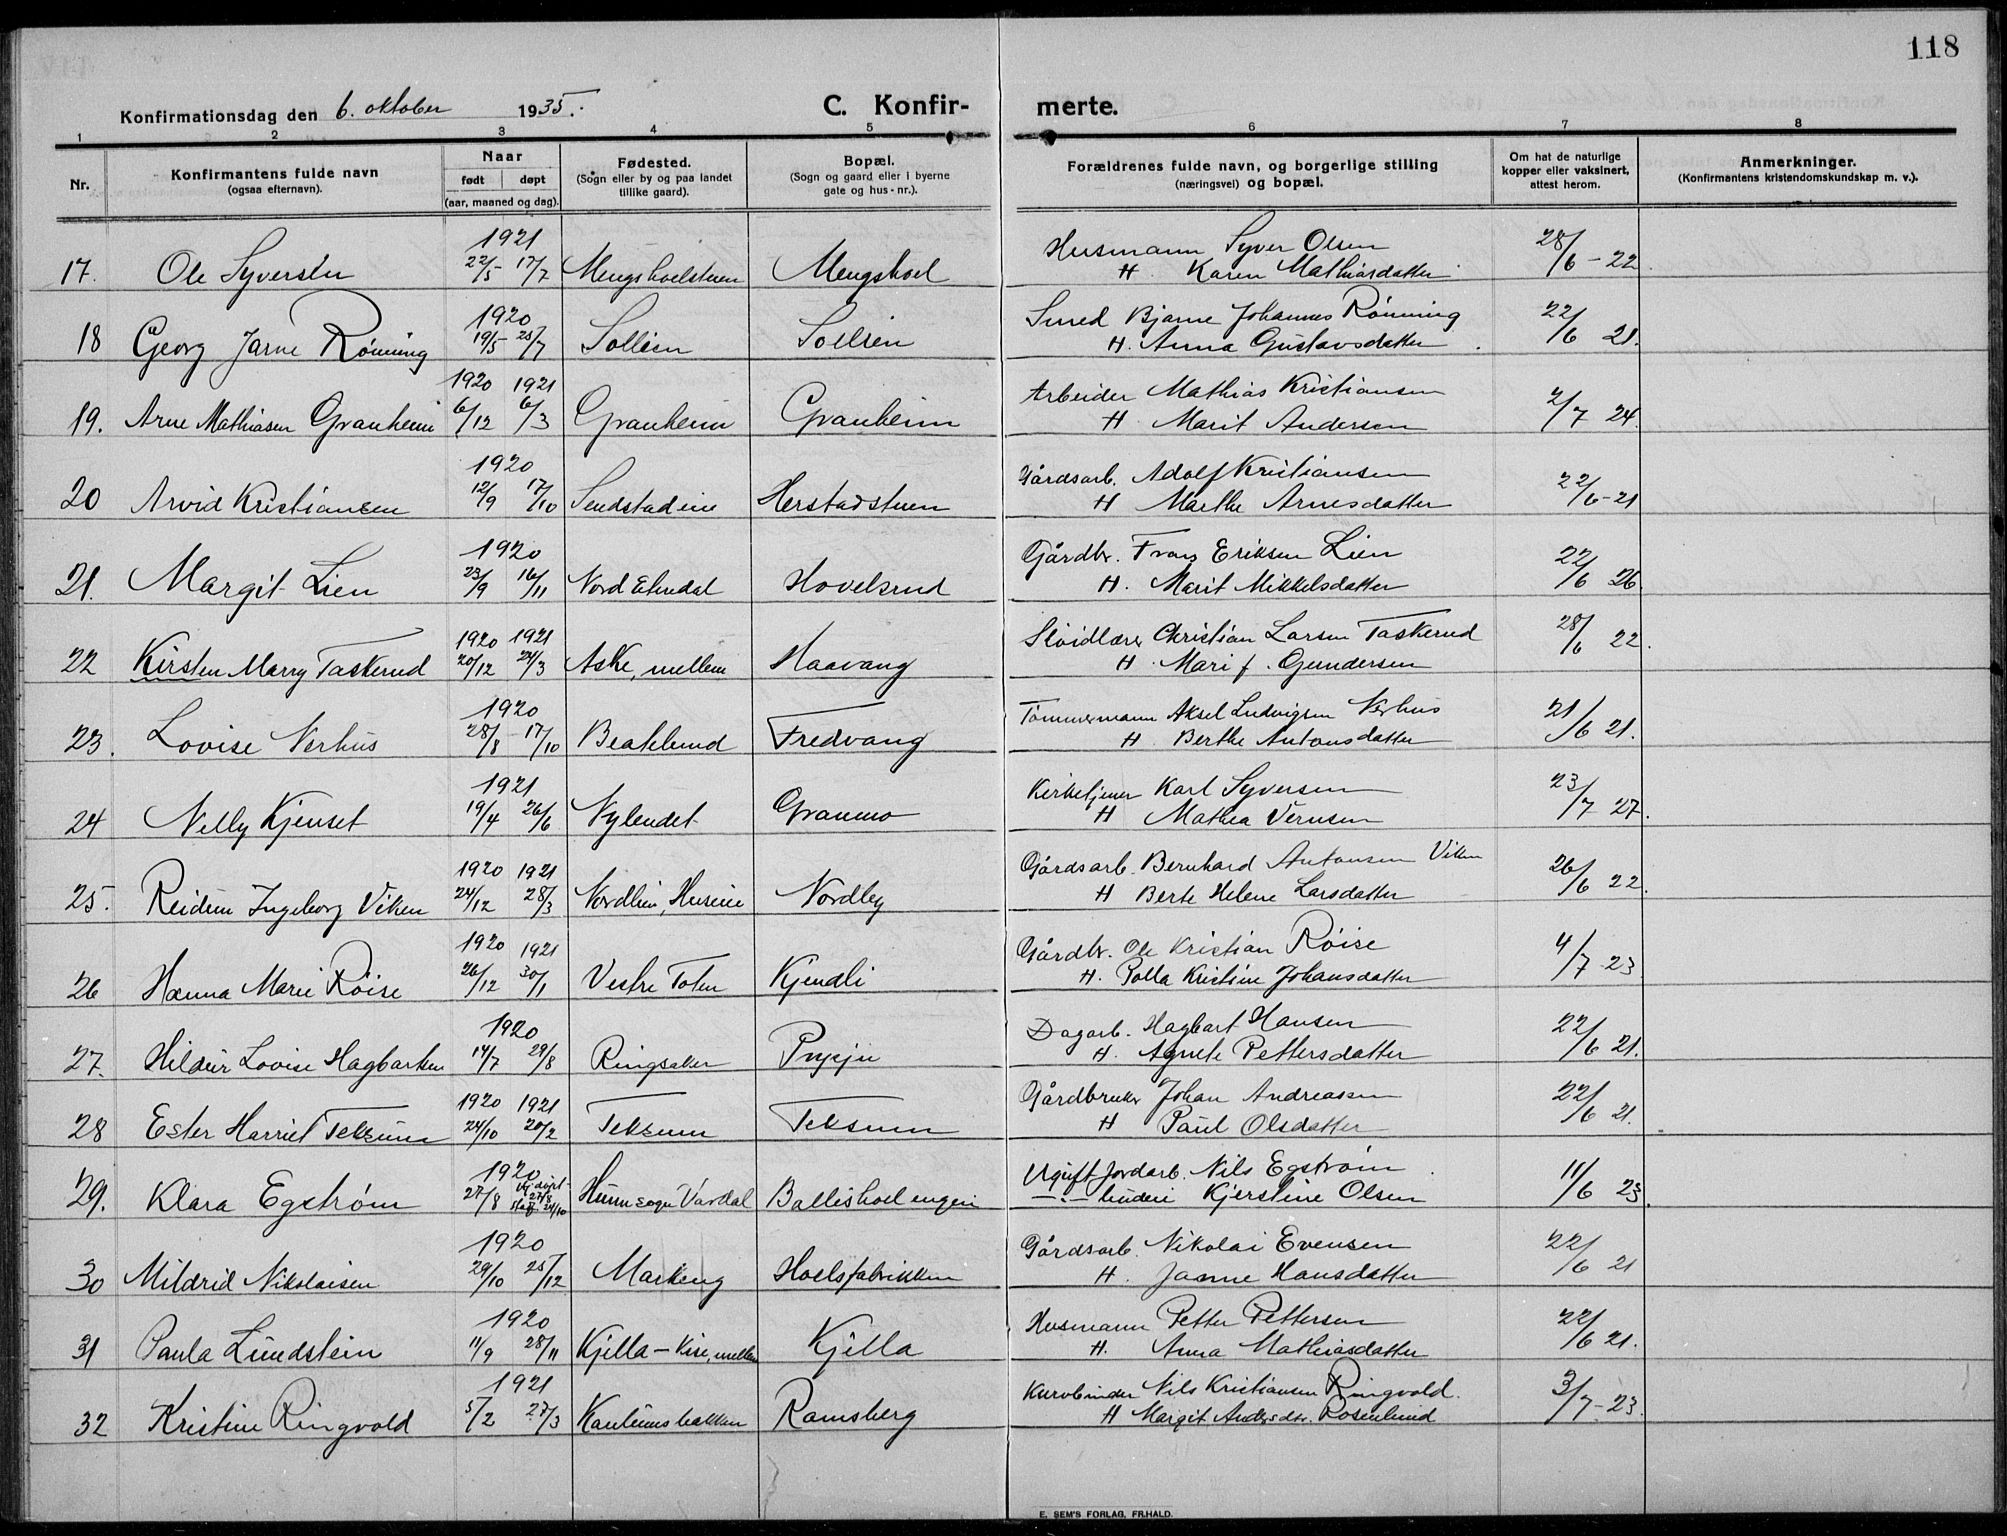 118
Konfirmationsdag den 6. oktober 1935.
C. Konfir- merte.
1 2 3 4 5 6 7 8
Nr.
Konfirmantens fulde navn
(ogsaa efternavn).
Naar
født døpt
(aar, maaned og dag).
Fødested.
(Sogn eller by og paa landet
tillike gaard).
Bopæl.
(Sogn og gaard eller i byerne
gate og hus-nr.).
Forældrenes fulde navn, og borgerlige stilling
(næringsvei) og bopæl.
Om hat de naturlige
kopper eller vaksinert,
attest herom.
Anmerkninger.
(Konfirmantens kristendomskundskap m. v.).
1921 Husmann Syver Olsen
17. Ole Syversen 22/5 17/7 Mengshoelstuen Mengshoel H. Karen Mathiasdatter 28/6 - 22
1920 Smed Bjarne Johannes Rönning
18 Georg Jarne Rönning 19/5 - 25/7 Sollien Sollien H. Anna Gustavsdatter 22/6 21.
1920 1921 Arbeider Mathias Kristiansen
19. Arne Mathiasen Granheim 6/12 6/3 Granheim Granheim H Marit Andersen 2/7 24.
1920 Gårdsarb. Adolf Kristiansen
20 Arvid Kristiansen 12/9 17/10 Sendstadeie Herstadstuen H Marthe Arnesdatter 22/6 - 21
1920 Gårdbr. Frans Eriksen Lien
21. Margit Lien 23/9 16/11 Nord Etnedal Hovelsrud H. Marit Mikkelsdatter 22/6 26.
1920 1921 Slöidlærer Christian Larsen Taskerud
22 Kirsten Marry Taskerud 20/12 24/3 Aske, mellem Haavang H. Mari f. Gundersen 28/6 22.
1920 Tömmermann Aksel Ludvigsen Nerhus
23. Lovise Nerhus 28/8 - 17/10 Beaklund Fredvang H Berthe Antonsdatter 21/6 21.
1921 Kirketjener Karl Syversen
24 Nelly Kjenset 19/4 26/6 Nylendet Granmo H Mathea Vernsen 23/7 27.
1920 1921 Gårdsarb. Bernhard Antonsen Viken
25. Reidun Ingeborg Viken 24/12 28/3 Nordlien, Huseeie Nordby H Berte Helene Larsdatter 26/6 22.
1920 1921 Gårdbr. Ole Kristian Röise
26 Hanna Marie Röise 26/12 30/1 Vestre Toten Kjendli H. Polla Kristine Johansdatter 4/7 23
1920 Dagarb. Hagbart Hansen
27. Hildur Lovise Hagbartsen 14/7 29/8 Ringsaker H. Agnete Pettersdatter 22/6 21.
1920 1921 Gårdbruker Johan Andreassen
28 Ester Harriet Teksum 24/10 20/2 Teksum Teksum H Paul Olsdatter 22/6 21.
1920 Hj. döpt Ugift Jordarb. Nils Egström
29. Klara Egström 27/8 27/8 stadf. 24/10 Hunn sogn Vardal Ballishoelengen -"- kvinde Kjerstine Olsen 11/6 23.
1920 Gårdsarb. Nikolai Evensen
30 Mildrid Nikolaisen 29/10 25/12 Markeng Hoelsfabrikken H. Janne Hansdatter 22/6 21
1920 Husmann Petter Pettersen
31 Paula Lundstein 11/9 28/11 Kjella - Kise, mellem Kjella H. Anna Mathiasdatter 22/6 21.
1921 Kurvbinder Nils Kristiansen Ringvold.
32 Kristine Ringvold 5/2 27/3 Kanlumsbakken Ramsberg H Margit Andersdtr. Rosenlund 3/7 - 23.
E. SEM'S FORLAG, FR.HALD.